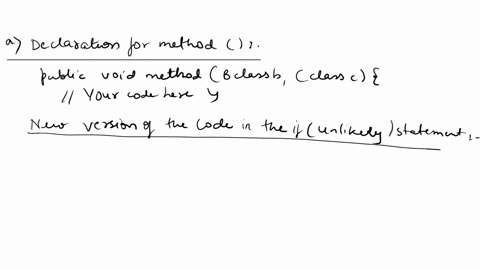 a) Declaration for method () :.
public void method (Bclassb, Cclass c) {
// Your code here }
New version of the code in the if (unlikely) statement :-